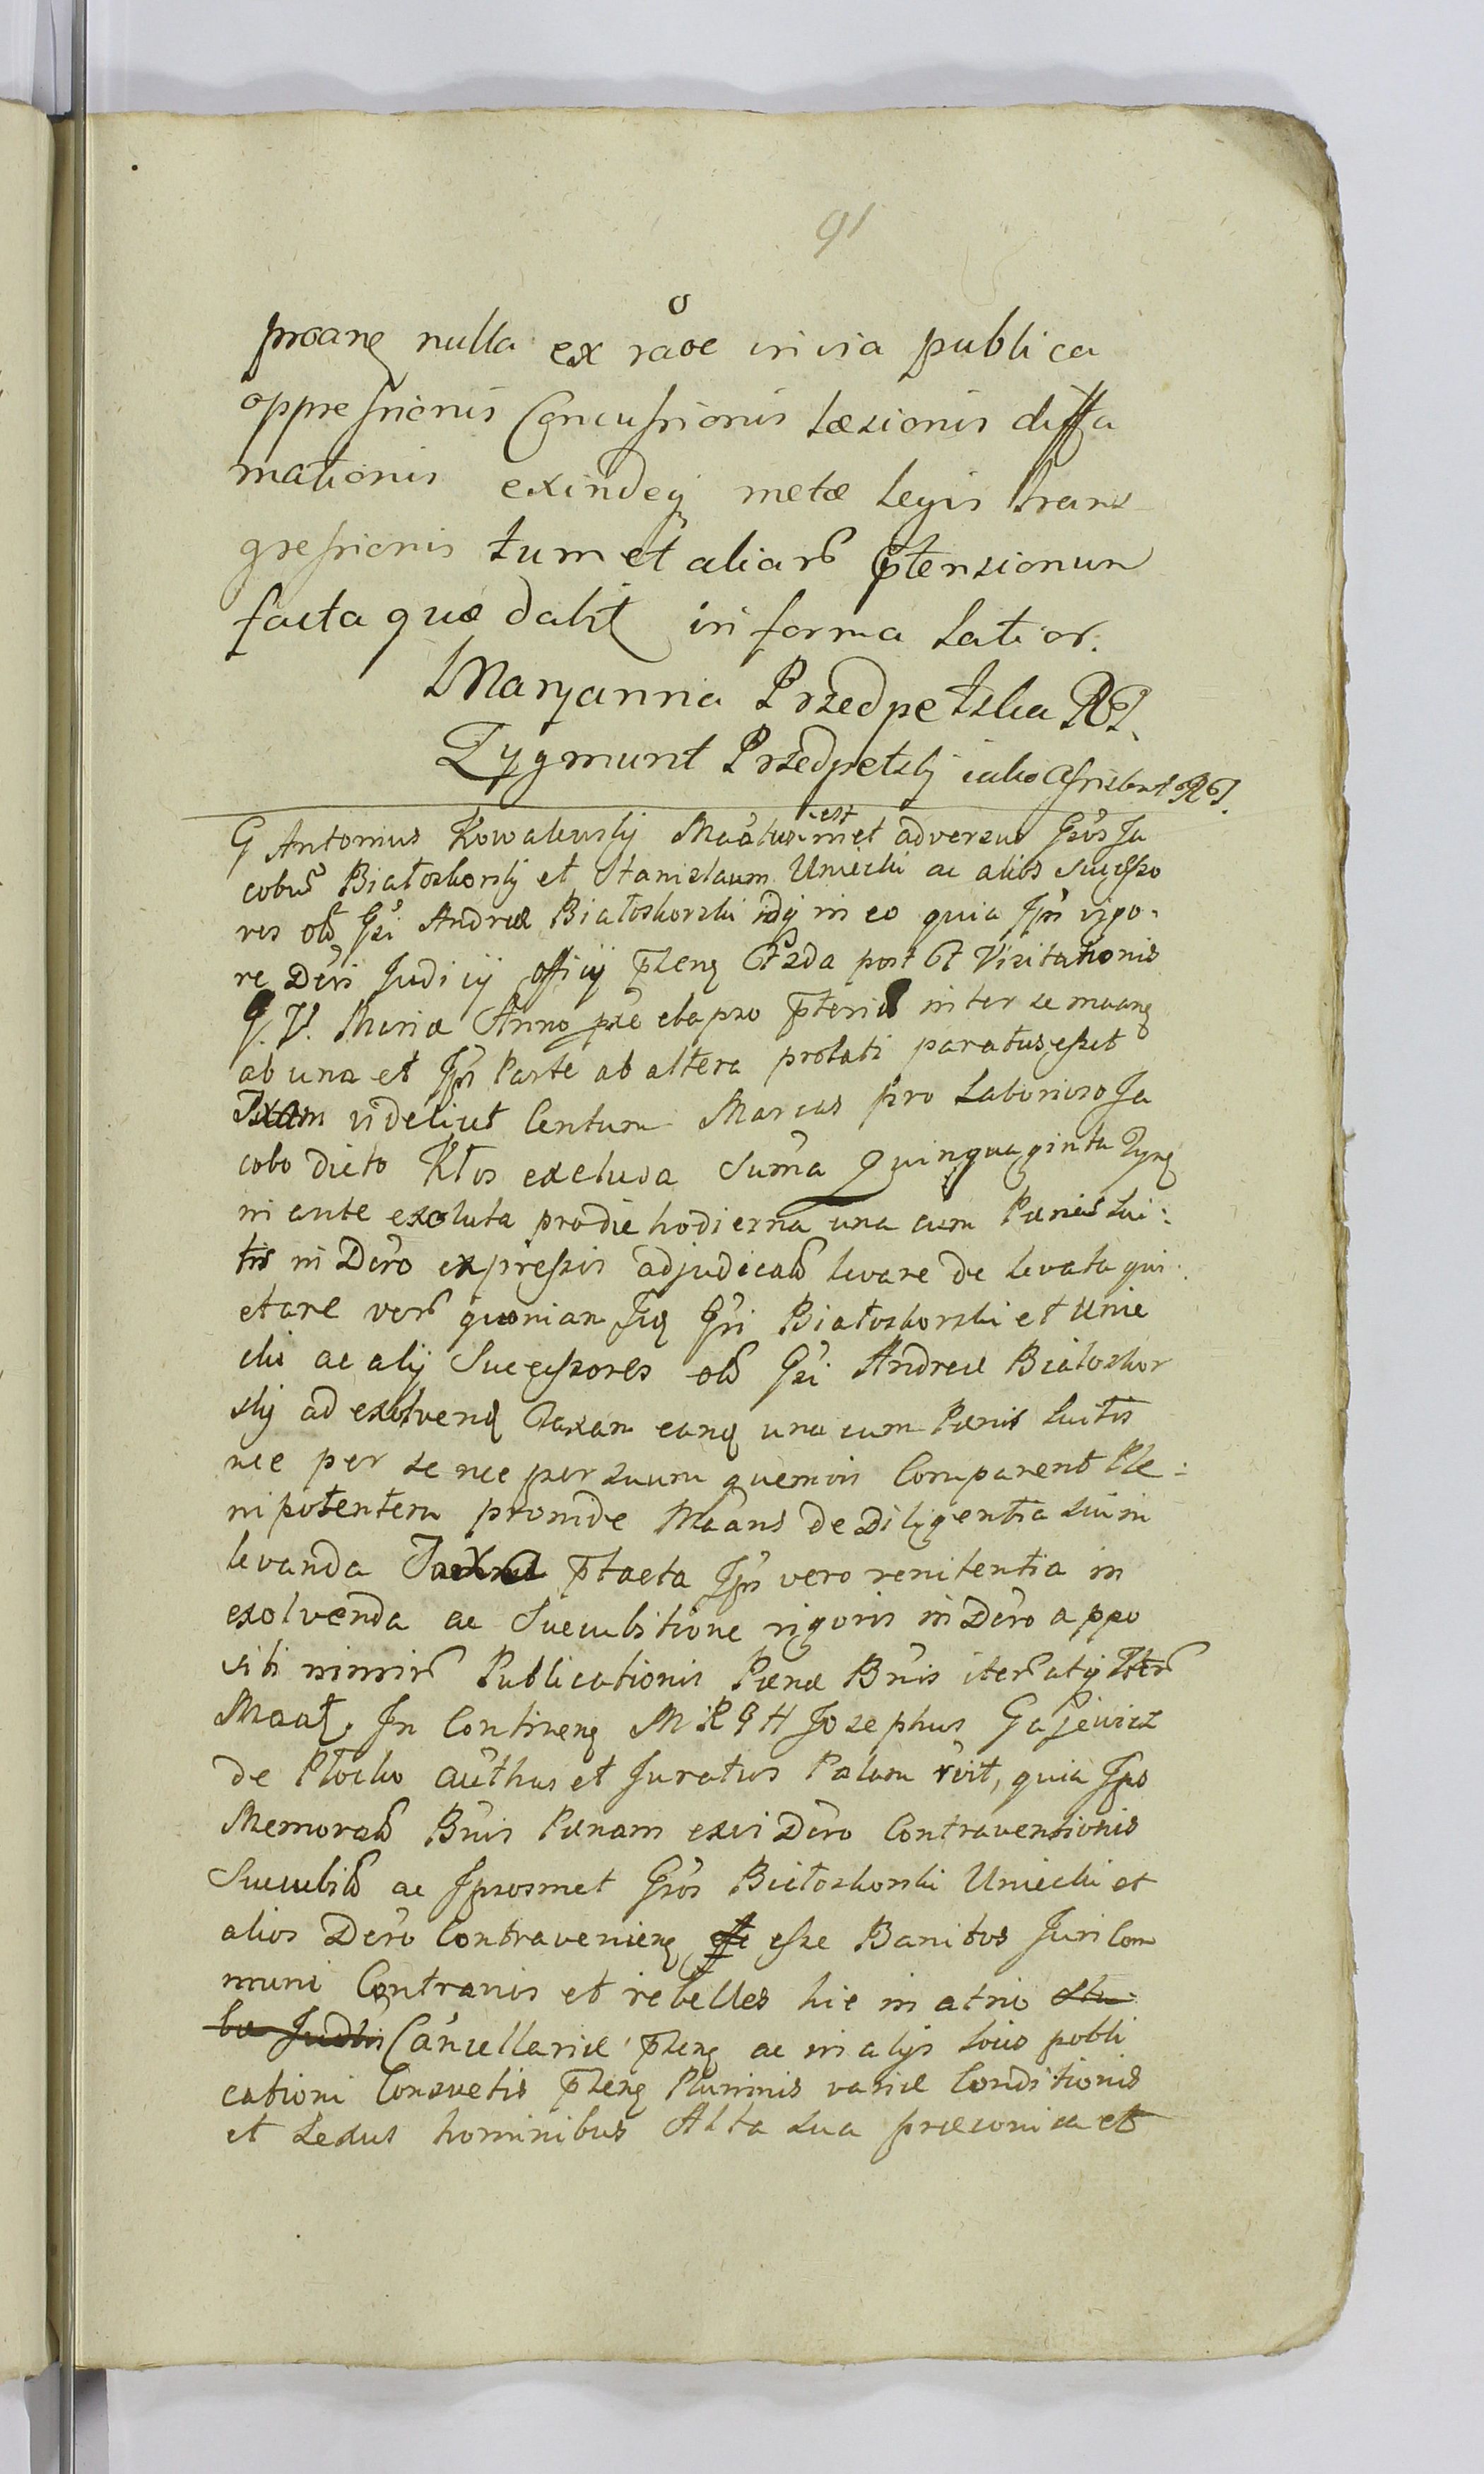 91
proanę nulla ex ra͠oe in via publica
oppressionis Concussionis læsionis diffa
mationis exindeq metæ legis trans-
gressionis tum et aliar͠ p̄tensionum
facta quæ dabit in forma Latior.
Maryanna Przedpełska
Zygmunt Przedpełskj iako Assistent
G Antonius Kowalewskj Ma͠atus est met adversus G͠sos Ja
cobu͠ Białoskorskj et Stanislaum Uniecki ac alios Successo
res ol͠ G͠si Andreæ Białoskorski idq in eo quia Ips͠i vigo-
re De͠ri Judicij officij p̄senę post Visitationis
G. V. Mariæ Anno elapso p̄teriti inter se
ab una et Ips͠i Parte ab altera prolati paratus esset
Taxam videlicet Centum Marcas pro Laborioso Ja
cobo dicto Kłos exclusa Sum͠a Quinquaginta Tynę
in ante exoluta pro die hodierna una cum Pænis Lui:
tis in De͠ro expressis adjudicat͠ levare de levata qui
etare ver͠ quoniam G͠si Białoskorski et Unie
cki ac alij Successores ol͠ G͠si Andreæ Białoskor
skj ad exolvenđ Taxam eanđ una cum Pænis Luitis
nec per se nec per suum quemvis Comparent Ple:
nipotentem proinde Ma͠ans de Diligentia sui in
levanda Taxa p̄facta Ips͠i vero renitentia in
exolvenda ac Succubitione rigoris in De͠ro appo
siti nimir͠ Publicationis Pænæ Ba͠nis iter͠ atq Iter͠
Maał. In Continenę M R G H Josephus Gajewicz
de Płocko authus et Juratus Palam r͠vit, quia Ips͠o
Memorat͠ Ba͠nis Pænam ex vi De͠ro Contraventionis
Succubit͠ ac Ipsosmet G͠sos Białoskorski Uniecki et
alios De͠ro Contravenienę esse Banitos Juri Com
muni Contrarios et rebelles hic in atrio Stu
ba Judlis Cancellariæ p̄senę ac in alijs locis publi
cationi Consvetis p̄senę Plurimis variæ Conditionis
et Sexus hominibus Alta sua præconica et